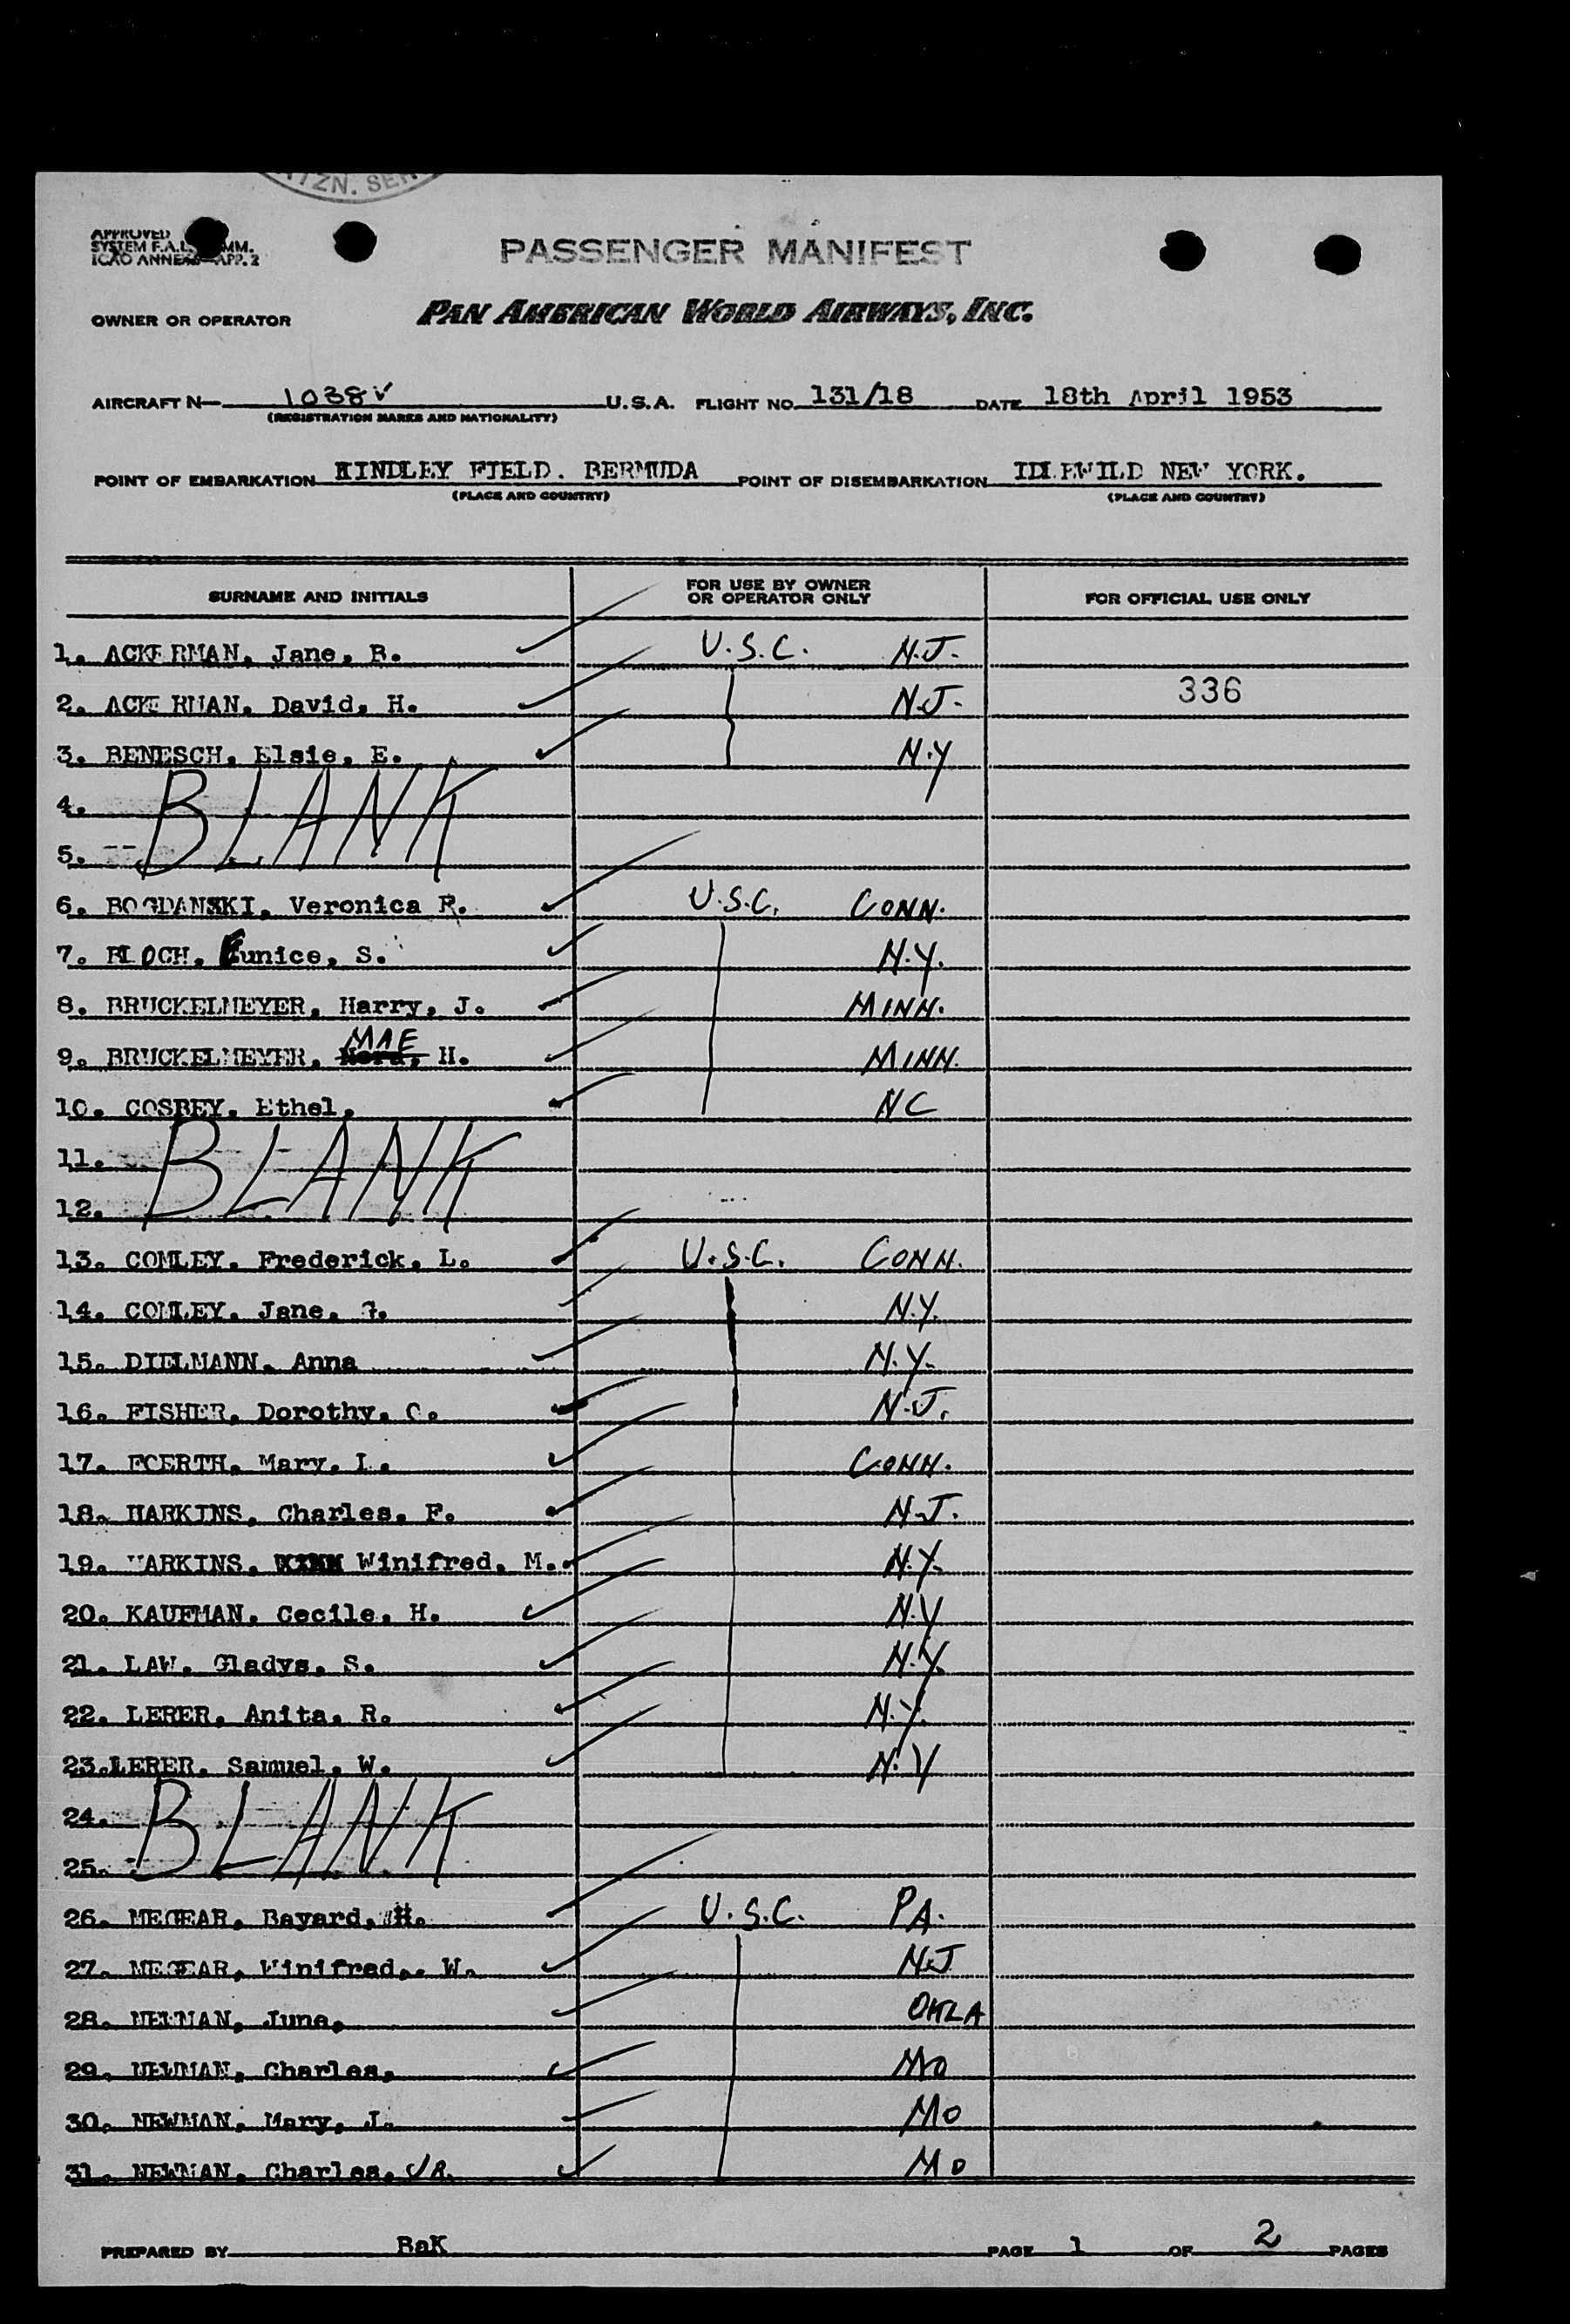 TZN. SER
APPROVED
SYSTEM F.A.L. MM.
ICAO ANNEX APP. 2
PASSENGER MANIFEST
OWNER OR OPERATOR PAN AMERICAN WORLD AIRWAYS, INC.
AIRCRAFT N— 1038V U.S.A. FLIGHT NO. 131/18 DATE 18th April 1953
(REGISTRATION MARKS AND NATIONALITY)
POINT OF EMBARKATION KINDLEY FIELD. BERMUDA POINT OF DISEMBARKATION IDLEWILD NEW YORK.
(PLACE AND COUNTRY) (PLACE AND COUNTRY)
SURNAME AND INITIALS FOR USE BY OWNER OR OPERATOR ONLY FOR OFFICIAL USE ONLY
1. ACKERMAN, Jane, B. U.S.C. N.J.
2. ACKERMAN, David, H. N.J. 336
3. BENESCH, Elsie, E. N.Y
4. BLANK
5.
6. BOGDANSKI, Veronica R. U.S.C. CONN.
7. BLOCH, Eunice, S. N.Y.
8. BRUCKELMEYER, Harry, J. MINN.
9. BRUCKELMEYER, MAE H. MINN.
10. COSBEY, Ethel, NC
11. BLANK
12.
13. COMLEY, Frederick, L. U.S.C. CONN.
14. COMLEY, Jane, G. N.Y.
15. DIELMANN, Anna N.Y.
16. FISHER, Dorothy, C. N.J.
17. FOERTH, Mary, L. CONN.
18. HARKINS, Charles, F. N.J.
19. HARKINS, Winifred, M. N.Y.
20. KAUFMAN, Cecile, H. N.Y
21. LAW, Gladys, S. N.Y.
22. LERER, Anita, R. N.Y.
23. LERER, Samuel, W. N.Y
24. BLANK
25.
26. MEGEAR, Bayard, H. U.S.C. PA.
27. MEGEAR, Winifred,. W. N.J
28. NEWMAN, June, OKLA
29. NEWMAN, Charles, MO
30. NEWMAN, Mary, J. MO
31. NEWMAN, Charles, JR. MO
PREPARED BY BaK PAGE 1 OF 2 PAGES